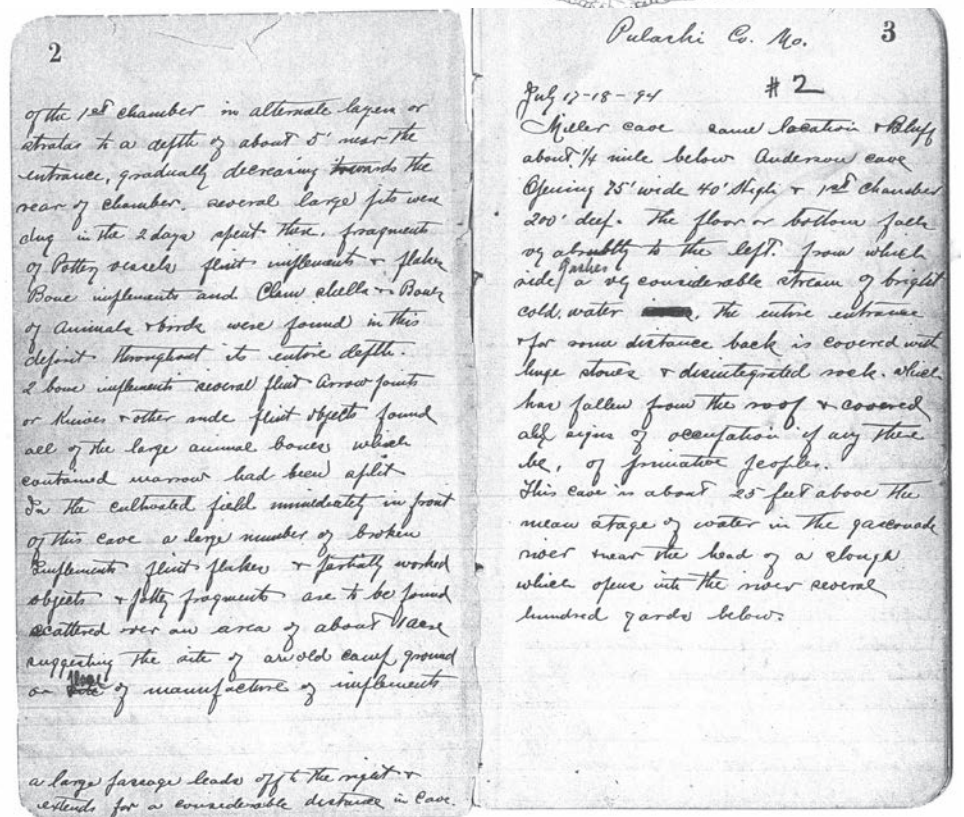 2
of the 1st chamber in alternate layers or
stratas to a depth of about 5' near the
entrance, gradually decreasing towards the
rear of chamber. several large pits were
dug in the 2 days spent there. fragments
of Pottery vessels flint implements & flakes
Bone implements and Clam shells & Bones
of Animals & birds were found in this
deposit throughout its entire depth.
2 bone implements several flint Arrow points
or Knives & other rude flint objects found
all of the large animal bones which
contained marrow had been split
In the cultivated field immediately in front
of this cave a large number of broken
Implements flint flakes & partially worked
objects & potty fragments are to be found
scattered over an area of about 1 acre
suggesting the site of an old camp ground
or place of manufacture of implements
a large passage leads off to the right &
extends for a considerable distance in Cave.
Pulaski Co. Mo. 3
July 17-18-94 #2
Miller cave same location & Bluff
about 1/4 mile below Anderson cave
Opening 75' wide 40' High & 1st chamber
200' deep. The floor or bottom falls
vy abruptly to the left. from which
side Gushes a vy considerable stream of bright
cold water. The entire entrance
& for some distance back is covered with
huge stones & disintegrated rock. which
has fallen from the roof & covered
all signs of occupation if any there
be, of primative peoples.
This cave is about 25 feet above the
mean stage of water in the gasconade
river & near the head of a slough
which opens into the river several
hundred yards below.